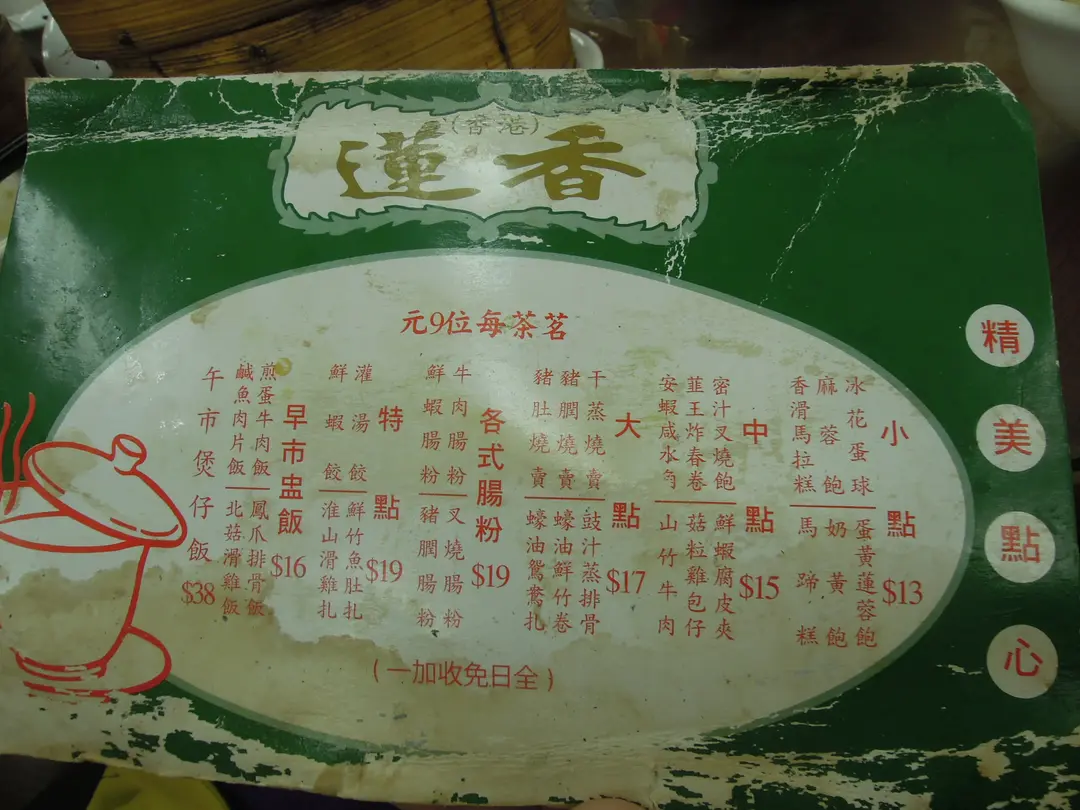 (香港)
蓮香
茗茶每位9元
精美點心
小點 $13
冰花蛋球
麻蓉飽
香滑馬拉糕
蛋黃蓮蓉飽
奶黃飽
馬蹄糕
中點 $15
密汁叉燒飽
韮王炸春卷
安蝦咸水角
鮮蝦腐皮夾
菇粒雞包仔
山竹牛肉
大點 $17
干蒸燒賣
豬潤燒賣
豬肚燒賣
豉汁蒸排骨
蠔油鮮竹卷
蠔油鴛鴦扎
各式腸粉 $19
牛肉腸粉
鮮蝦腸粉
叉燒腸粉
豬潤腸粉
特點 $19
灌湯餃
鮮蝦餃
鮮竹魚肚扎
淮山滑雞扎
早市盅飯 $16
煎蛋牛肉飯
鹹魚肉片飯
鳳爪排骨飯
北菇滑雞飯
午市煲仔飯 $38
(全日免收加一)